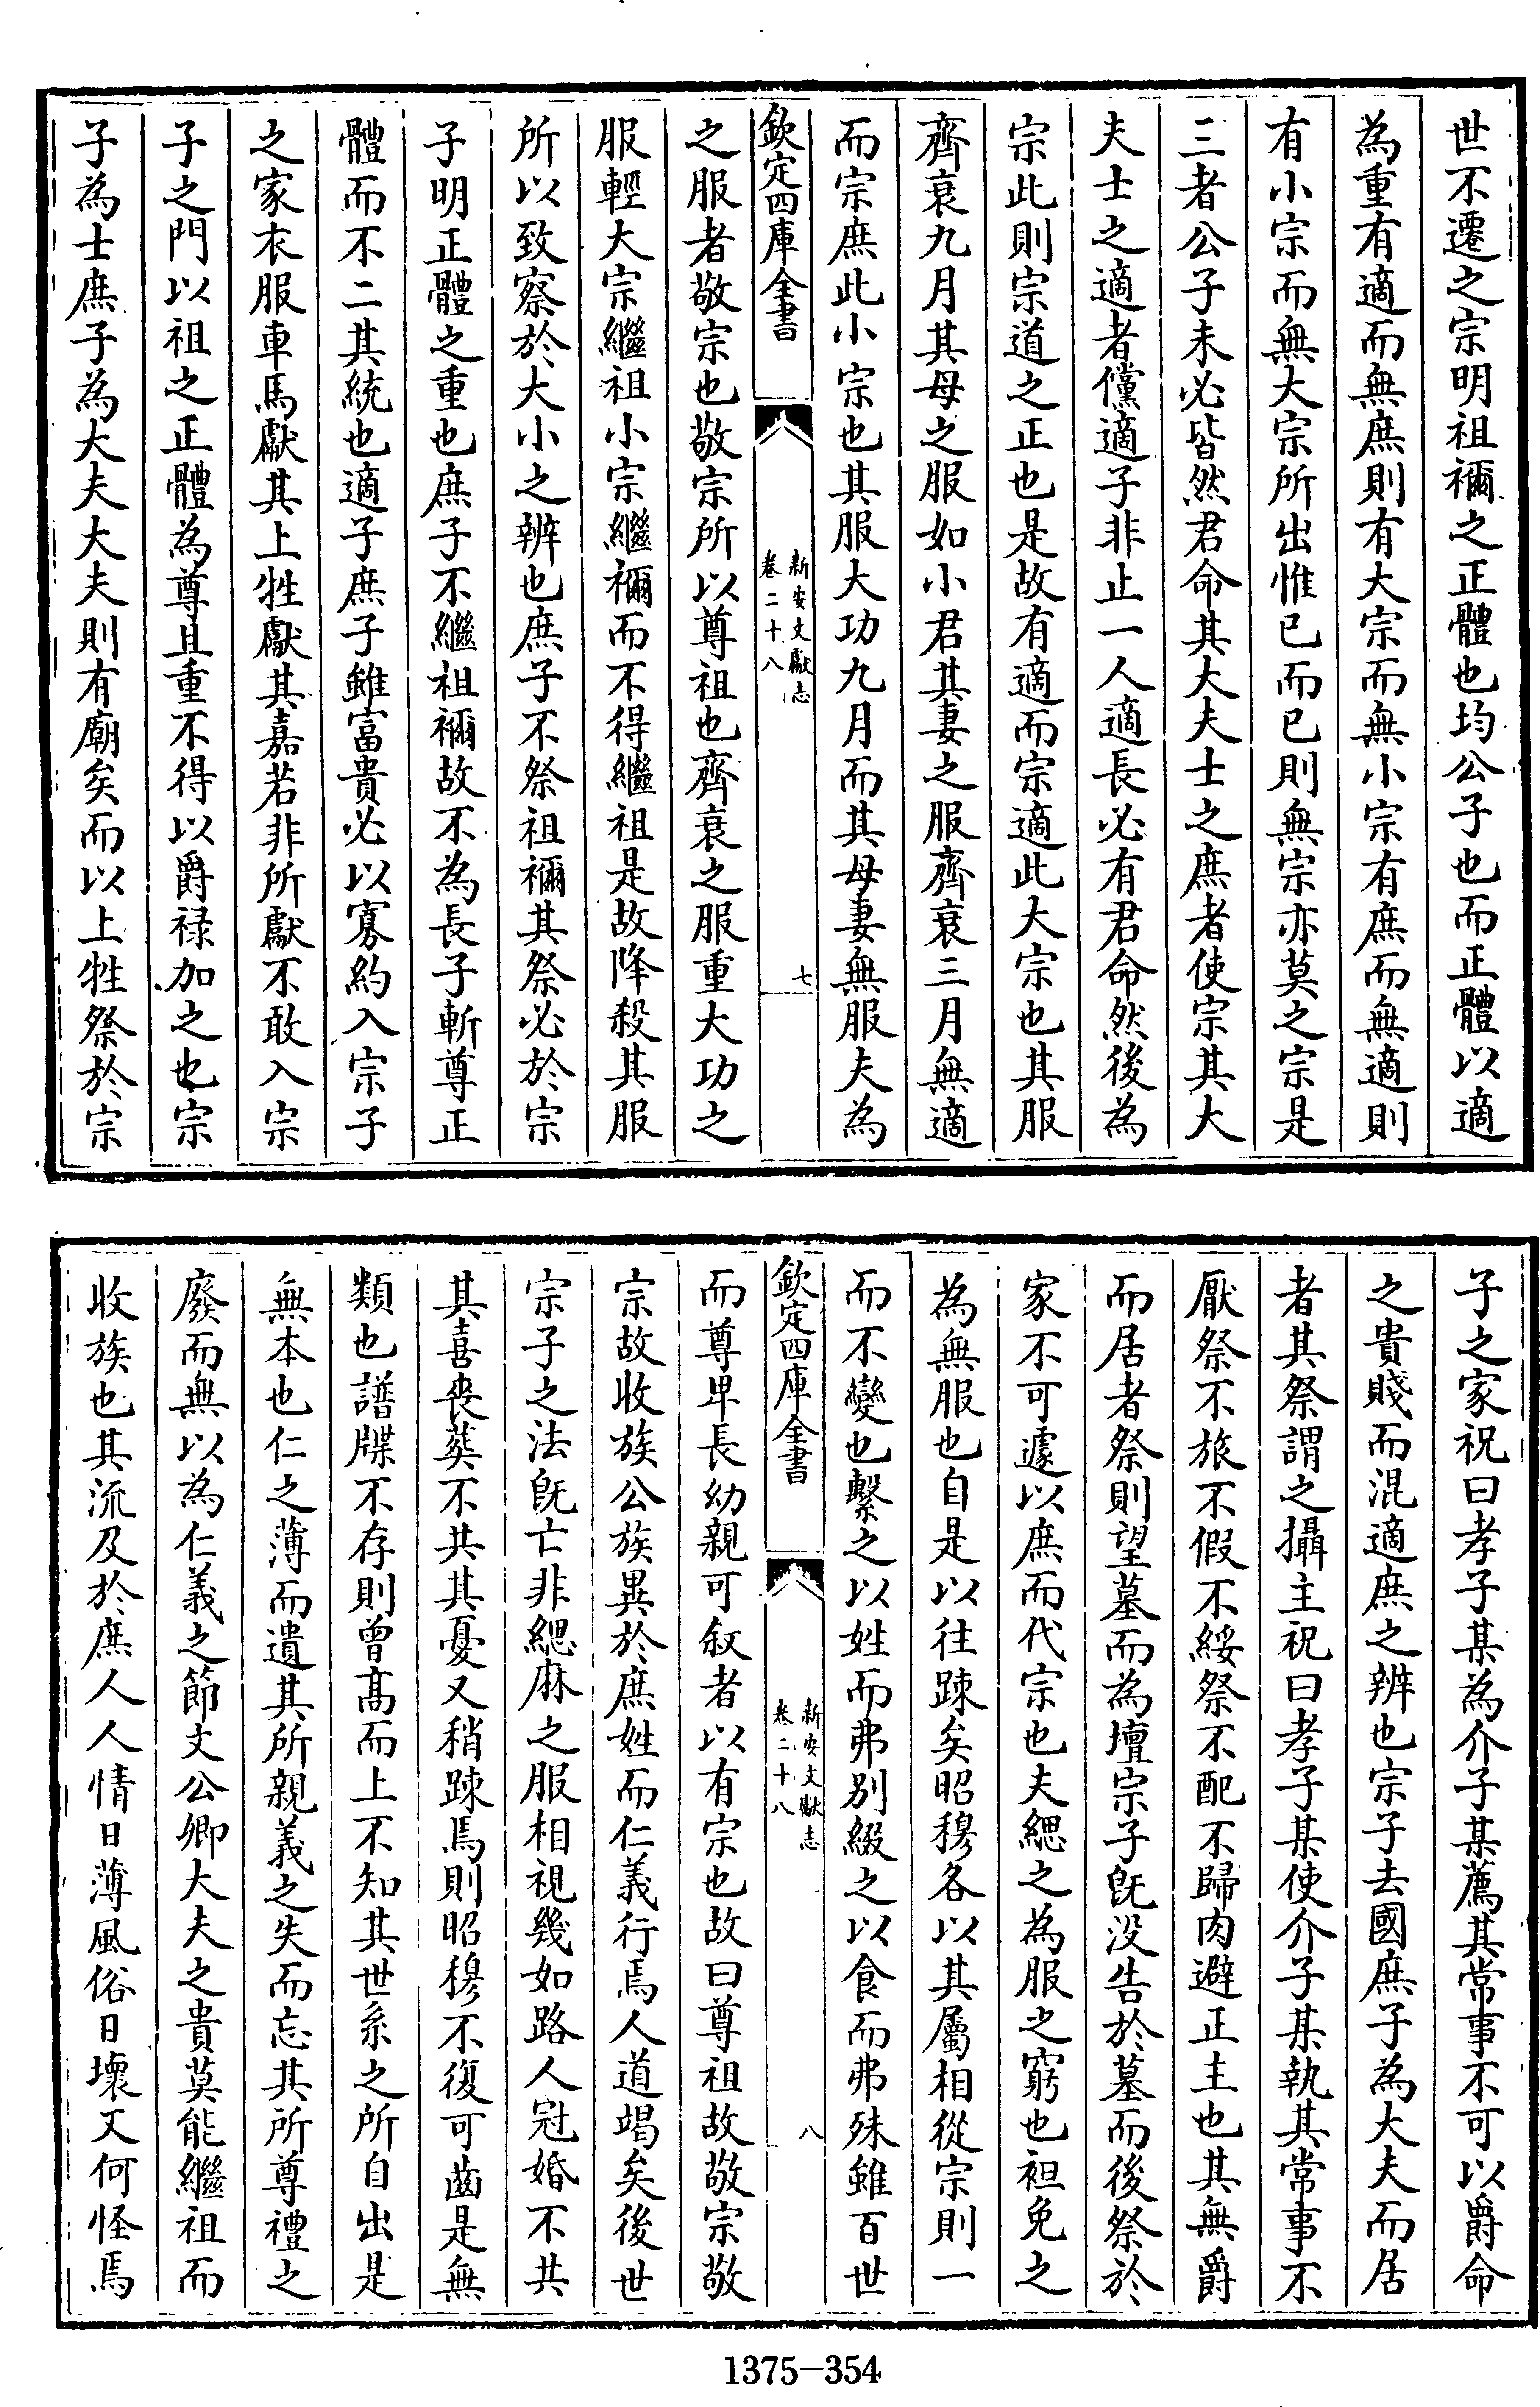 世不遷之宗明祖禰之正體也均公子也而正體以適
為重有適而無庶則有大宗而無小宗有庶而無適則
有小宗而無大宗所出惟已而已則無宗亦莫之宗是
三者公子未必皆然君命其大夫士之庶者使宗其大
夫士之適者儻適子非止一人適長必有君命然後為
宗此則宗道之正也是故有適而宗適此大宗也其服
齊衰九月其母之服如小君其妻之服齊衰三月無適
而宗庶此小宗也其服大功九月而其母妻無服夫為
欽定四庫全書
新安文獻志
卷二十八
七
之服者敬宗也敬宗所以尊祖也齊衰之服重大功之
服輕大宗繼祖小宗繼禰而不得繼祖是故降殺其服
所以致察於大小之辨也庶子不祭祖禰其祭必於宗
子明正體之重也庶子不繼祖禰故不為長子斬尊正
體而不二其統也適子庶子雖富貴必以寡約入宗子
之家衣服車馬獻其上牲獻其嘉若非所獻不敢入宗
子之門以祖之正體為尊且重不得以爵禄加之也宗
子為士庶子為大夫大夫則有廟矣而以上牲祭於宗
子之家祝曰孝子某為介子某薦其常事不可以爵命
之貴賤而混適庶之辨也宗子去國庶子為大夫而居
者其祭謂之攝主祝曰孝子某使介子某執其常事不
厭祭不旅不假不綏祭不配不歸肉避正主也其無爵
而居者祭則望墓而為壇宗子既没告於墓而後祭於
家不可遽以庶而代宗也夫緦之為服之窮也袒免之
為無服也自是以往踈矣昭穆各以其屬相從宗則一
而不變也繫之以姓而弗別綴之以食而弗殊雖百世
欽定四庫全書
新安文獻志
卷二十八
八
而尊卑長幼親可敘者以有宗也故曰尊祖故敬宗敬
宗故收族公族異於庶姓而仁義行焉人道竭矣後世
宗子之法既亡非緦麻之服相視幾如路人冠婚不共
其喜喪葬不共其憂又稍踈焉則昭穆不復可齒是無
類也譜牒不存則曾髙而上不知其世系之所自出是
無本也仁之薄而遺其所親義之失而忘其所尊禮之
廢而無以為仁義之節文公卿大夫之貴莫能繼祖而
收族也其流及於庶人人情日薄風俗日壞又何怪焉
1375-354